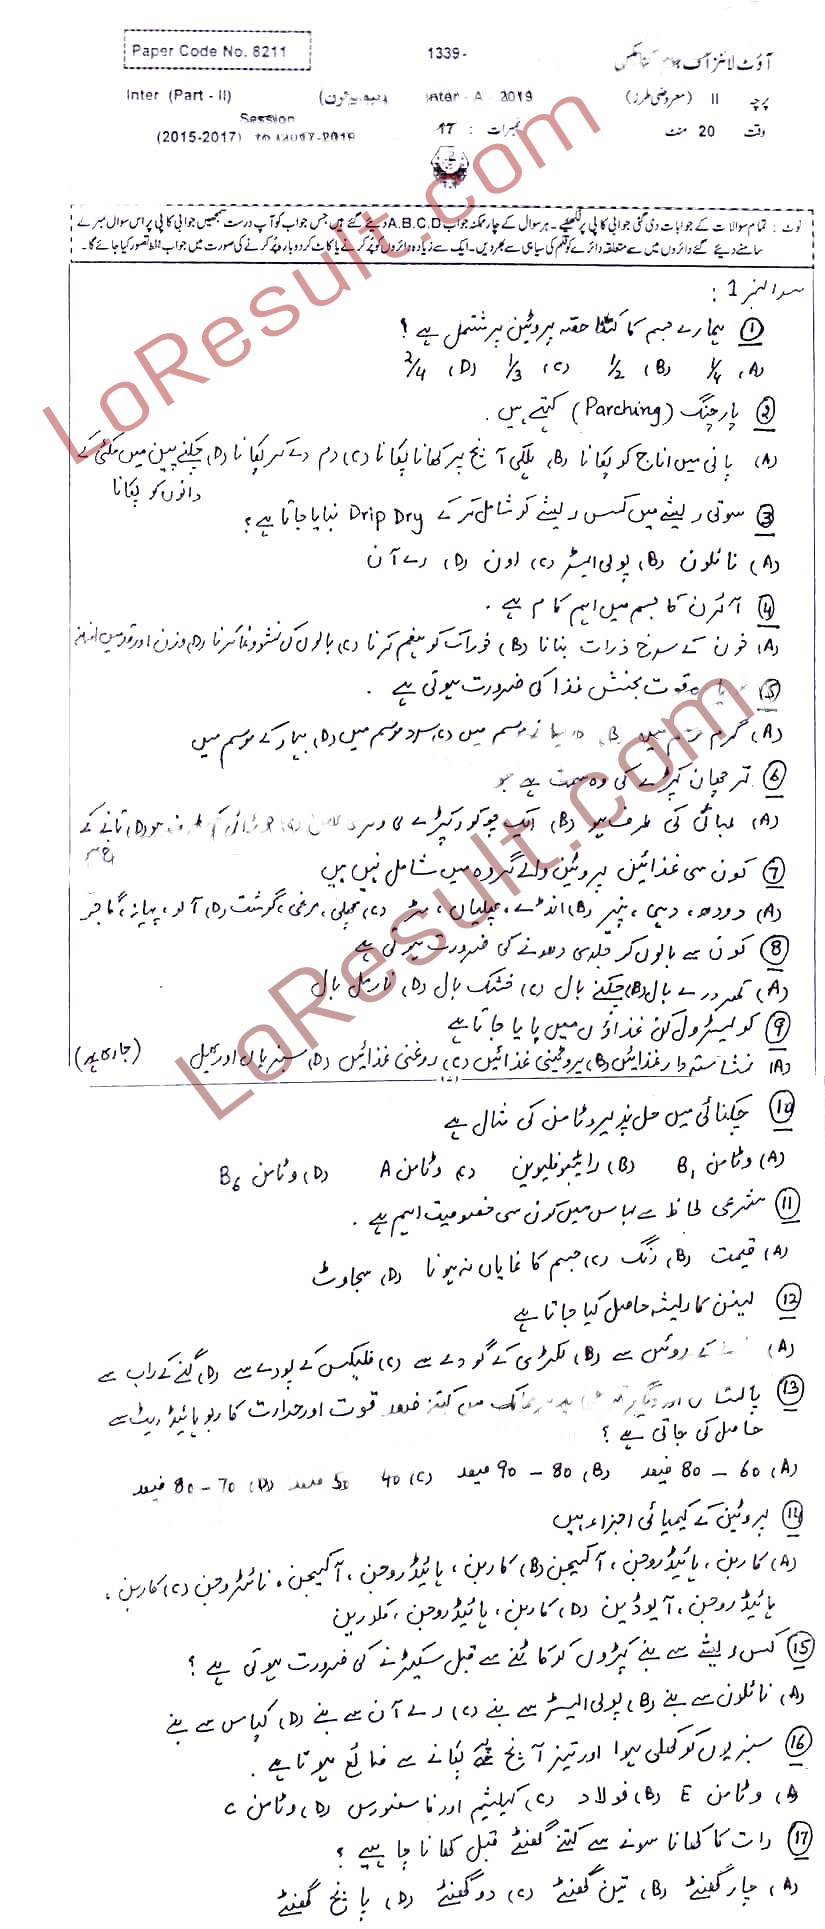 Paper Code No. 8211
1339-
آؤٹ لائنز آف ہوم اکنامکس
Inter (Part - II)
Inter - A - 2019
پرچہ II (معروضی طرز)
Session
(2015-2017) to (2017-2019)
نمبرات : 17
وقت 20 منٹ
نوٹ : تمام سوالات کے جوابات دی گئی جوابی کاپی پر لکھیے۔ ہر سوال کے چار ممکنہ جواب A.B.C.D دیئے گئے ہیں جس جواب کو آپ درست سمجھیں جوابی کاپی پر اس سوال نمبر کے
سامنے دیئے گئے دائروں میں سے متعلقہ دائرے کو قلم کی سیاہی سے بھر دیں۔ ایک سے زیادہ دائروں کو پُر کرنے یا کاٹ کر دوبارہ پُر کرنے کی صورت میں جواب غلط تصور کیا جائے گا۔
سوال نمبر 1 :
① ہمارے جسم کا کتنا حصہ پروٹین پر مشتمل ہے ؟
(A) 1/4 (B) 1/2 (C) 1/3 (D) 2/4
② پارچنگ (Parching) کہتے ہیں ۔
(A) پانی میں اناج کو پکانا (B) ہلکی آنچ پر کھانا پکانا (C) دم دے کر پکانا (D) چکنے پین میں مکئی کے
دانوں کو پکانا
③ سوتی ریشے میں کس ریشے کو شامل کر کے Drip Dry بنایا جاتا ہے ؟
(A) نائلون (B) پولی ایسٹر (C) اون (D) رے آن
④ آئرن کا جسم میں اہم کام ہے ۔
(A) خون کے سرخ ذرات بنانا (B) خوراک کو ہضم کرنا (C) بالوں کی نشوونما کرنا (D) وزن اور قد میں اضافہ
⑤ قوت بخش غذا کی ضرورت ہوتی ہے ۔
(A) گرم موسم میں (B) موسم میں (C) سرد موسم میں (D) بہار کے موسم میں
⑥ ترچھان کپڑے کی وہ سمت ہے جو
(A) لمبائی کی طرف ہو (B) ایک چوکور کپڑے کی (C) چوڑائی کی طرف ہو (D) تانے کے
رخ ہو
⑦ کون سی غذائیں پروٹین والے گروہ میں شامل نہیں ہیں
(A) دودھ، دہی، پنیر (B) انڈے، پھلیاں، مٹر (C) مچھلی، مرغی، گوشت (D) آلو، پیاز، گاجر
⑧ کون سے بالوں کو جلدی دھونے کی ضرورت ہوتی ہے
(A) کھردرے بال (B) چکنے بال (C) خشک بال (D) نارمل بال
⑨ کولیسٹرول کن غذاؤں میں پایا جاتا ہے
(A) نشاستہ دار غذائیں (B) پروٹینی غذائیں (C) روغنی غذائیں (D) سبزیاں اور پھل (جاری ہے)
⑩ چکنائی میں حل پذیر وٹامن کی مثال ہے
(A) وٹامن B1 (B) رائیبوفلیوین (C) وٹامن A (D) وٹامن B6
⑪ شرعی لحاظ سے لباس میں کون سی خصوصیت اہم ہے ۔
(A) قیمت (B) رنگ (C) جسم کا نمایاں نہ ہونا (D) سجاوٹ
⑫ لینن کا ریشہ حاصل کیا جاتا ہے
(A) کے روئیں سے (B) لکڑی کے گودے سے (C) فلیکس کے پودے سے (D) گنے کے راب سے
⑬ پاکستان اور دیگر ترقی پذیر ممالک میں کتنے فیصد قوت اور حرارت کاربوہائیڈریٹ سے
حاصل کی جاتی ہے ؟
(A) 60 – 80 فیصد (B) 80 – 90 فیصد (C) 40 50 فیصد (D) 70 – 80 فیصد
⑭ پروٹین کے کیمیائی اجزاء ہیں
(A) کاربن، ہائیڈروجن، آکسیجن (B) کاربن، ہائیڈروجن، آکسیجن، نائٹروجن (C) کاربن،
ہائیڈروجن، آیوڈین (D) کاربن، ہائیڈروجن، کلورین
⑮ کس ریشے سے بنے کپڑوں کو کاٹنے سے قبل سکیڑنے کی ضرورت ہوتی ہے ؟
(A) نائلون سے بنے (B) پولی ایسٹر سے بنے (C) رے آن سے بنے (D) کپاس سے بنے
⑯ سبزیوں کو کھلی ہوا اور تیز آنچ پر پکانے سے ضائع ہوتا ہے ۔
(A) وٹامن E (B) فولاد (C) کیلشیم اور فاسفورس (D) وٹامن C
⑰ رات کا کھانا سونے سے کتنے گھنٹے قبل کھانا چاہیے ؟
(A) چار گھنٹے (B) تین گھنٹے (C) دو گھنٹے (D) پانچ گھنٹے
LoResult.com
LoResult.com